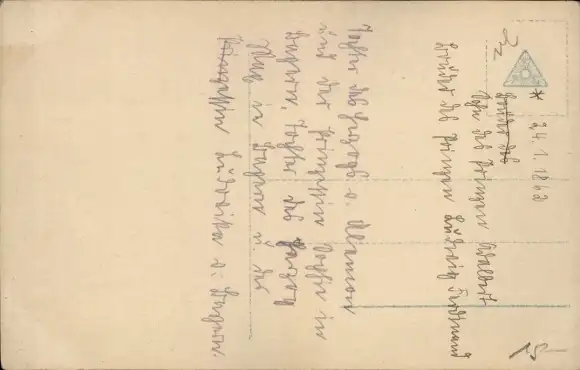 * 24. 1. 1862
Bruder des
Sohn des Prinzen Adalbert
Bruder des Prinzen Ludwig Ferdinand
Tochter des Herzogs v. Alennon
und der Prinzessin Sophie in
Bayern, Tochter des Herzog
Max in Bayern u. der
Prinzessin Ludovika v. Bayern.
15—